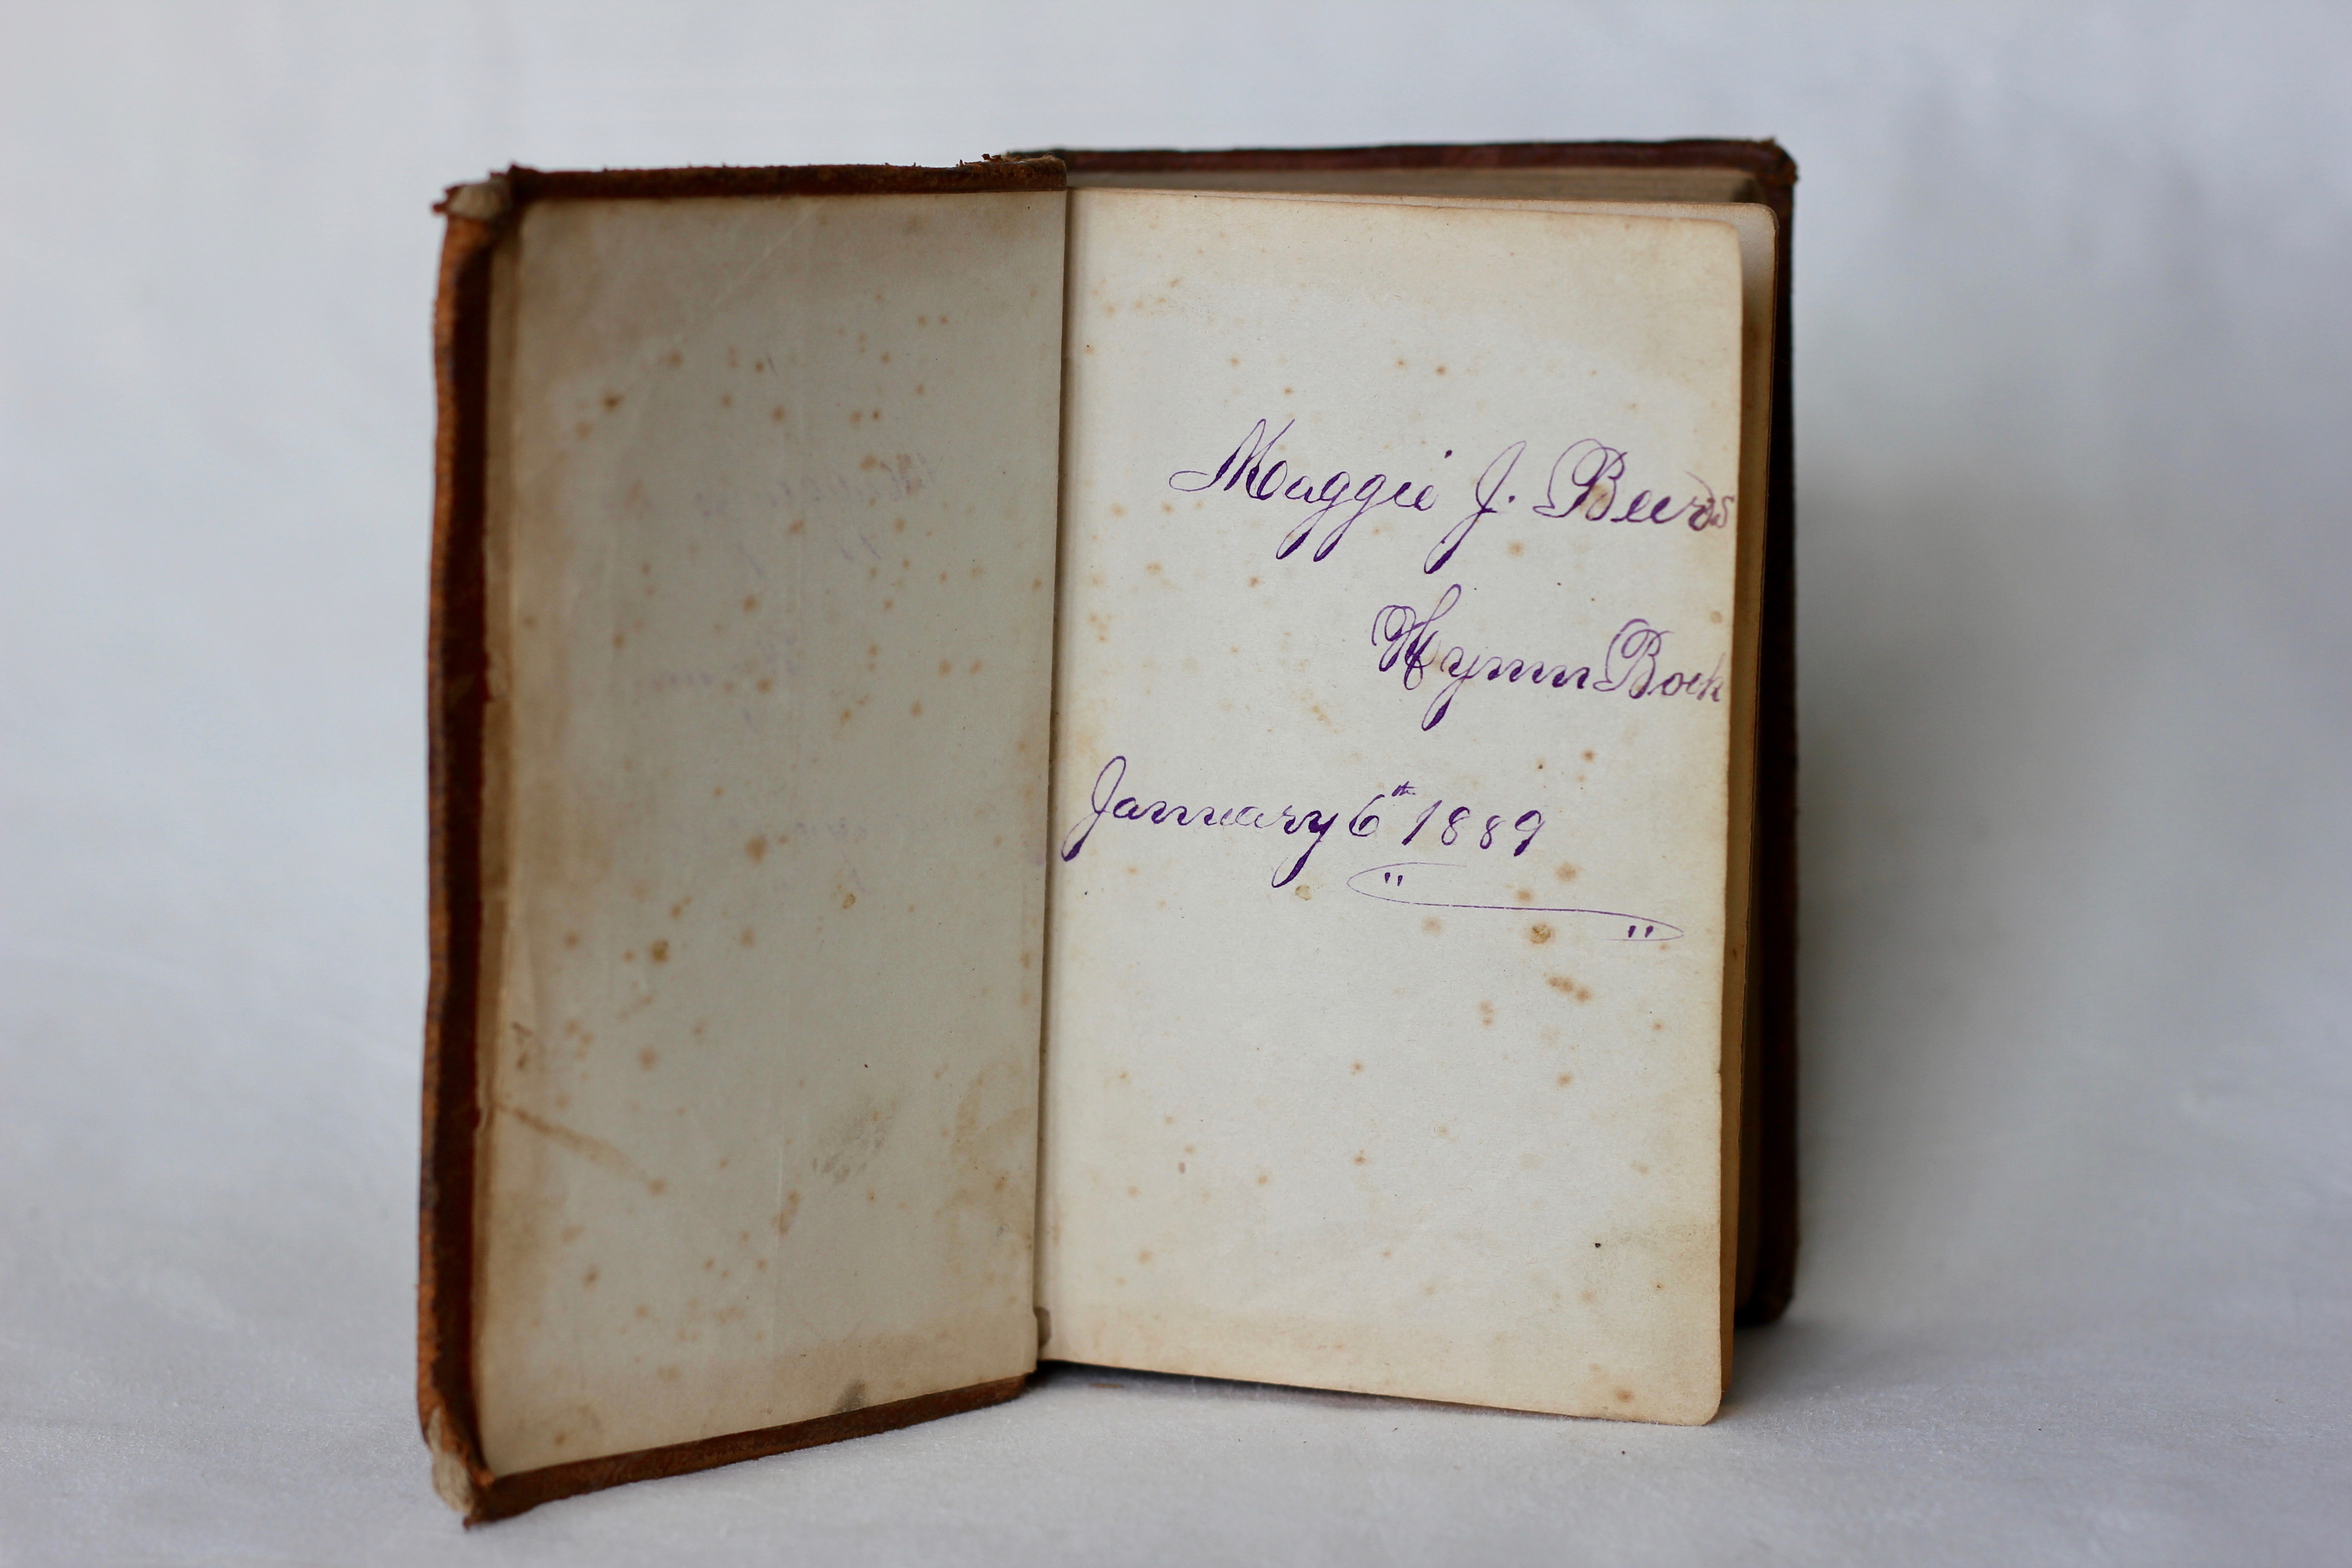 Maggie J. Beers
Hymn Book
January 6th 1889
" "